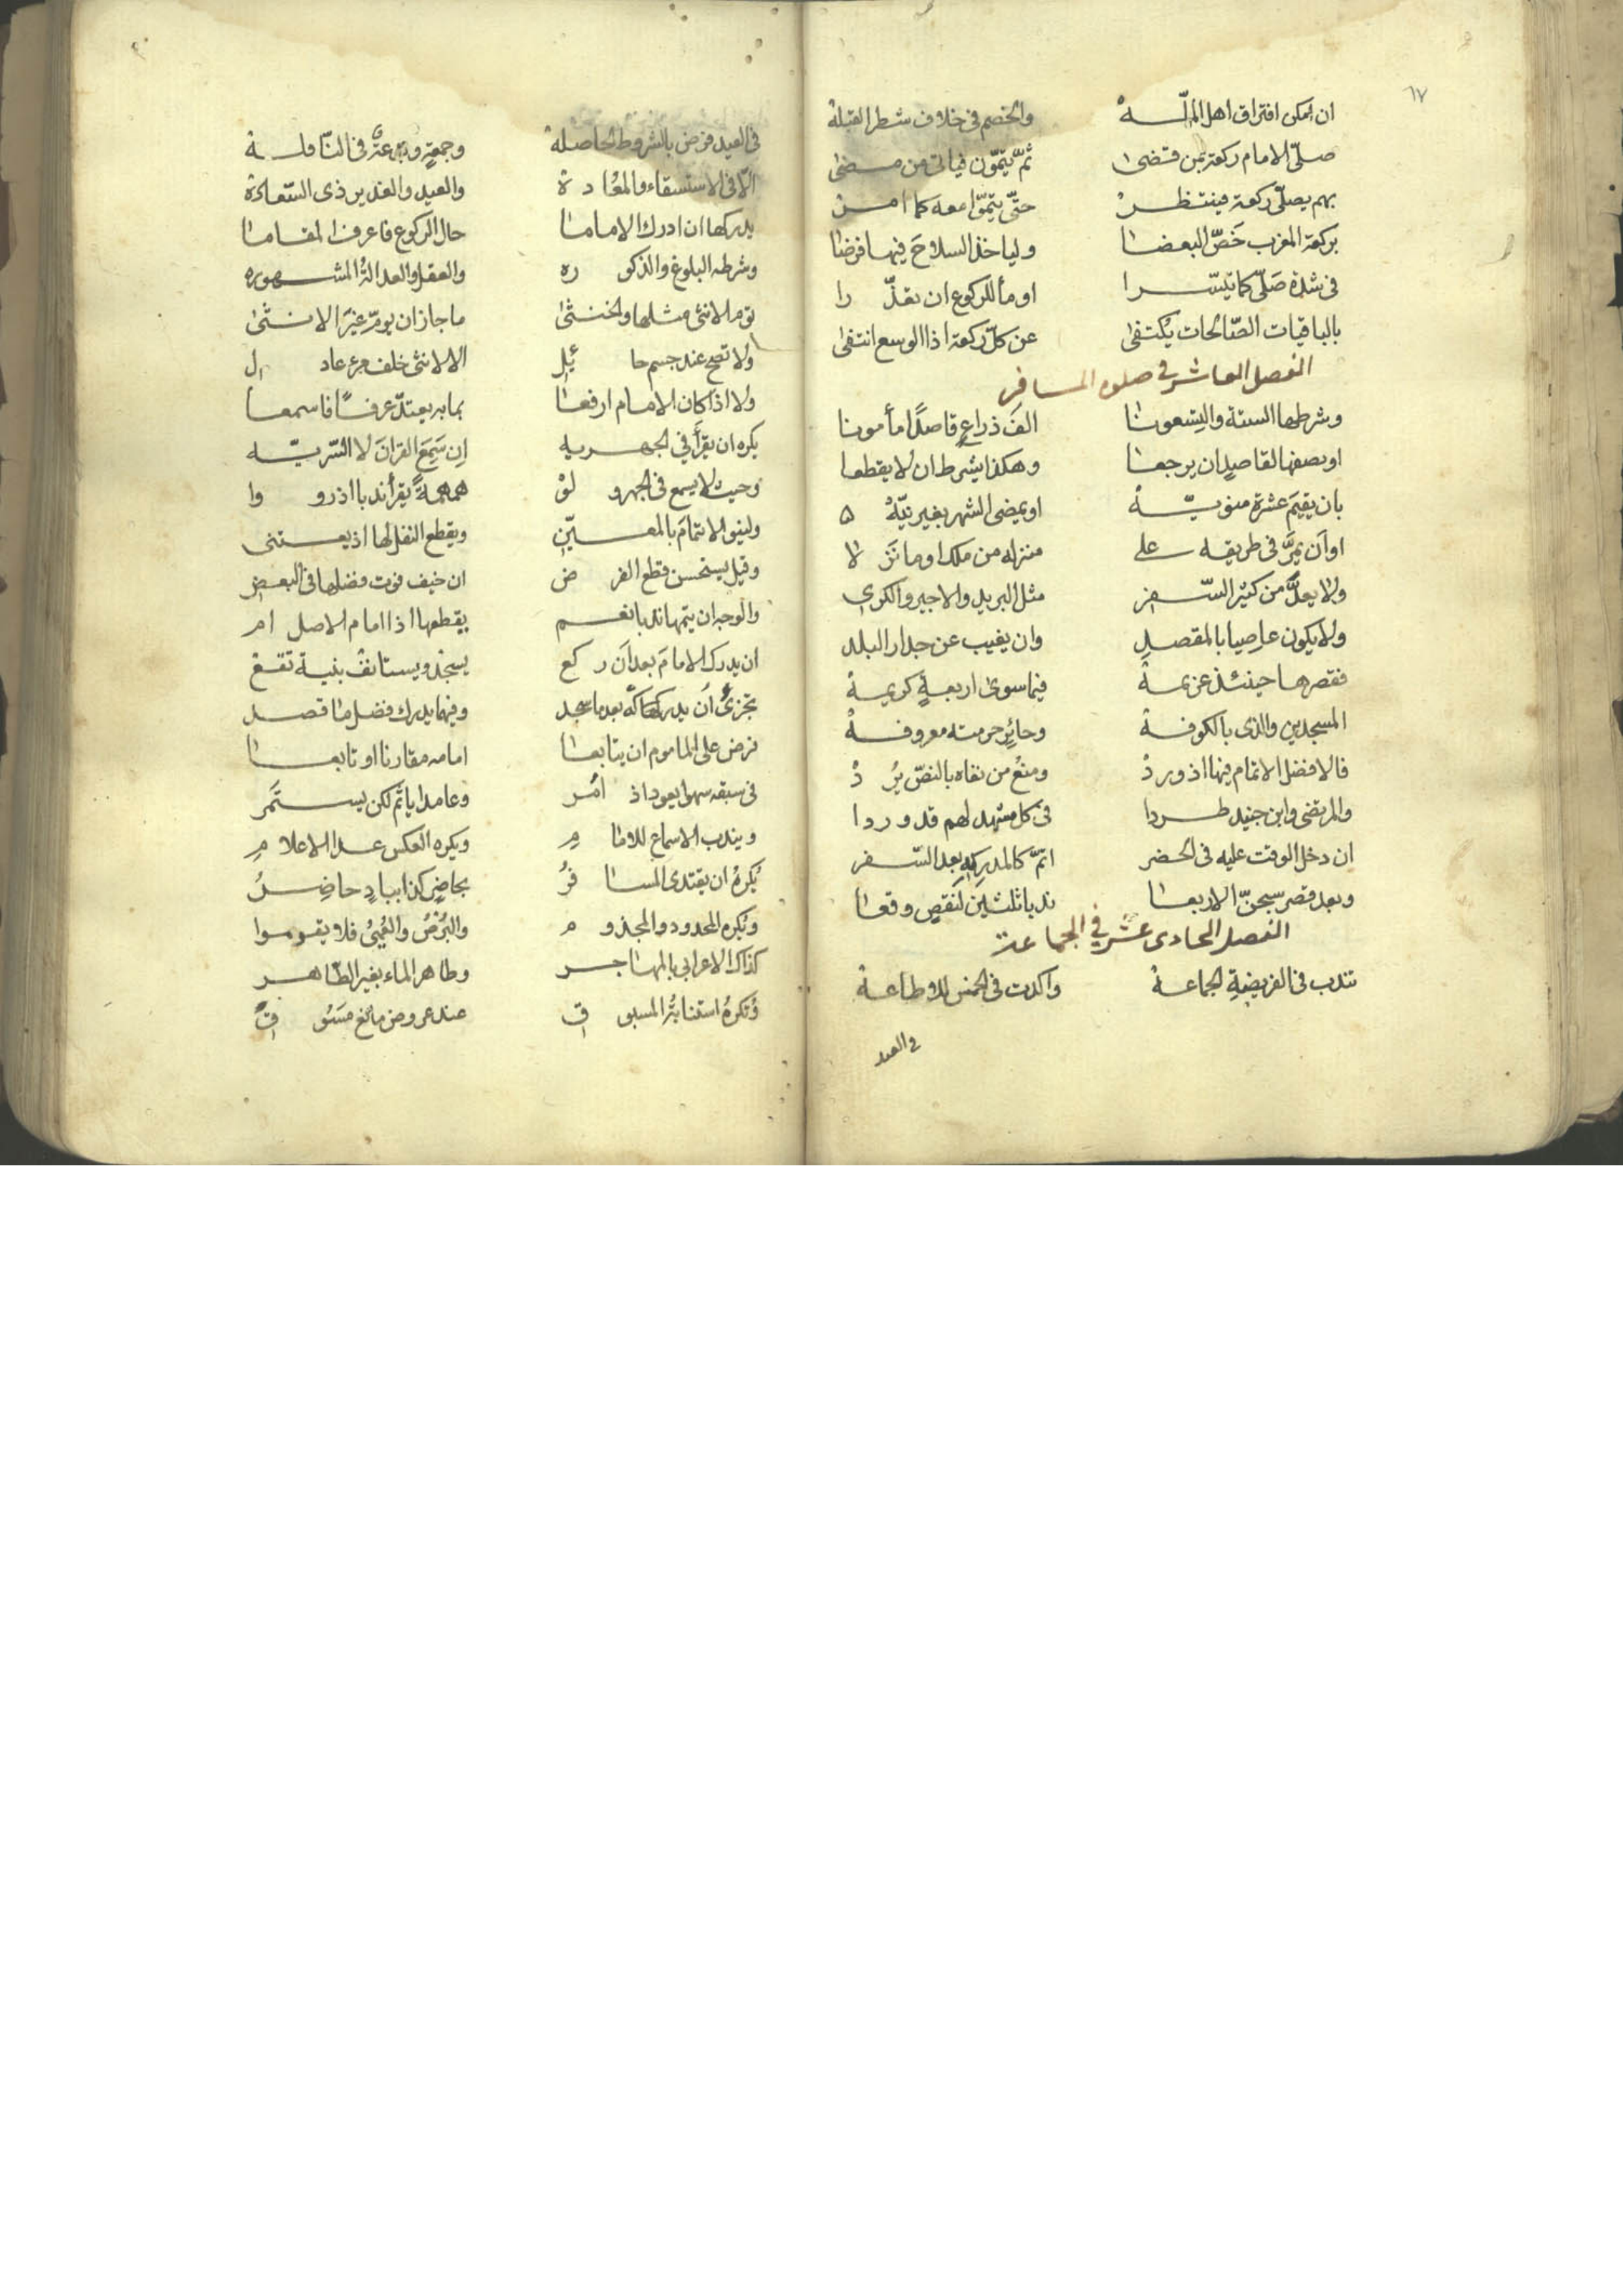 ٦٧
ان امكن افتراق اهل الملّة والخصم فى خلاف شطر القبلة
صلّى الامام ركعة بمن قضى ثمّ يتمّون فياتى من مضى
بهم يصلّى ركعة فينتظر حتّى يتمّوا معه كما امر
بركعة المغرب خَصّ البعضا ولياخذ السلاحَ فيها فرضا
فى شدّة صَلّى كما تيسّرا اومأ للركوع ان تعذّرا
بالباقيات الصّالحات يُكتفى عن كلّ ركعة اذا الوسع انتفى
الفصل العاشر فى صلوة المسافر
وشرطها الستة والتِسعونا الفَ ذراعٍ قاصدًا مأمونا
او نصفها لقاصدٍ ان يرجعا وهكذا يشرط ان لا يقطعا
بان يقيمَ عشرة منويّة او يمضى الشهر بغير نيّة
او اَن يمرَّ فى طريقه على منزله من ملك او ما نزلا
ولا يعدُّ من كثير السّفر مثل البريد والاجير والكرى
ولا يكون عاصيا بالمقصدِ وان يغيب عن جدار البلد
فقصرها حينئذ عزيمة فيما سوى اربعةٍ كريمة
المسجدين والذى بالكوفة وحائرٍ حرمته معروفة
فالافضل الاتمام فيها اذ ورد ومنعُ من نفاه بالنصّ يُرد
والمرتضى وابن جنيد طردا فى كل مشهد لهم قد وردا
ان دخل الوقت عليه فى الحضر اتمّ كالمدركِهِ بعد السّفر
وبعد قصر سبحنّ الاربعا ندبا ثلثين لنقصٍ وقعا
الفصل الحادى عشر فى الجماعة
تندب فى الفريضةِ الجماعة واكدت فى الخمس للاطاعة
فى العيد
فى العيد فرض بالشروط الحاصلة وجمعةٍ وبدعةٌ فى النّافلة
الّا فى الاستسقاء والمعُادة والعيد والغدير ذى السّعادة
يدركها ان ادرك الاماما حال الركوع فاعرف المقاما
وشرطه البلوغ والذكوره والعقل والعدالةُ المشهوره
تؤم الانثى مثلها والخنثى ما جاز ان يؤمّ غيرَ الانثى
ولا تصح عند جسم حائل الا لانثى خلف مرء عادل
ولا اذا كان الامام ارفعا بما به يعتدّ عرفًا فاسمعا
يكره ان يقرأَ فى الجهريه اِن سَمِعَ القرانَ لا السّريّه
وحيث لا يسمع فى الجهر ولوْ همهمةً يقرأ ندبا اذ رووا
ولينو الائتمامَ بالمعيّنِ ويقطع النفل لها اذ يعتنى
وقيل يستحسن قطع الفرض ان خيف فوت فضلها فى البعضِ
والوجه ان يتمها ندبا نعم يقطعها اذا امام الاصل ام
ان يدرك الامامَ بعد اَن ركع يسجد ويستانف بنية تقع
تجزئُ اَن يدركه بعد ما سجد وفيهما يدرك فضل ما قصد
فرض على الماموم ان يتابعا امامه مقارنا او تابعا
فى سبقه سهوا يعود اذ امُر وعامدا ياثم لكن يستمر
ويندب الاسماع للامامِ ويكره العكس عدا الاعلامِ
يُكرهُ ان يقتدى المسافرُ بحاضرٍ كذا ببادٍ حاضِرُ
ويُكره المحدود والمجذوم والبُرْصُ والعُمىُ فلا يقوموا
كذاك الاعرابى بالمهاجر وطاهر الماء بغير الطّاهر
وتُكرهُ استنابةُ المسبوق عند عروض مانعٍ مَسُوق